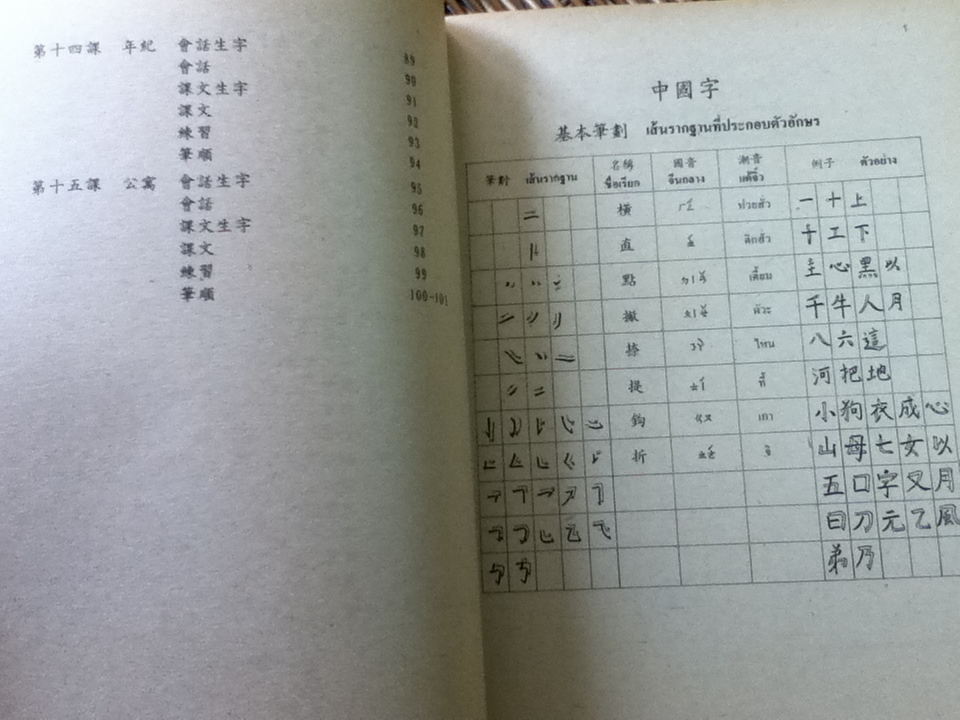 第十四課 年紀 會話生字 89
會話 90
課文生字 91
課文 92
練習 93
筆順 94
第十五課 公寓 會話生字 95
會話 96
課文生字 97
課文 98
練習 99
筆順 100-101
中國字
基本筆劃 เส้นรากฐานที่ประกอบตัวอักษร
筆劃 เส้นรากฐาน 名稱 ชื่อเรียก 國音 จีนกลาง 潮音 แต้จิ๋ว 例子 ตัวอย่าง
橫 ㄏㄥˊ 一 十 上
直 ㄓˊ 十 工 下
點 ㄉㄧㄢˇ 主 心 黑 以
撇 ㄆㄧㄝˇ 千 牛 人 月
捺 ㄋㄚˋ 八 六 這
提 河 把 地
鈎 ㄍㄡ 小 狗 衣 成 心
折 ㄓㄜˊ 山 母 七 女 以
五 口 字 又 月
日 刀 元 乙 風
弟 乃